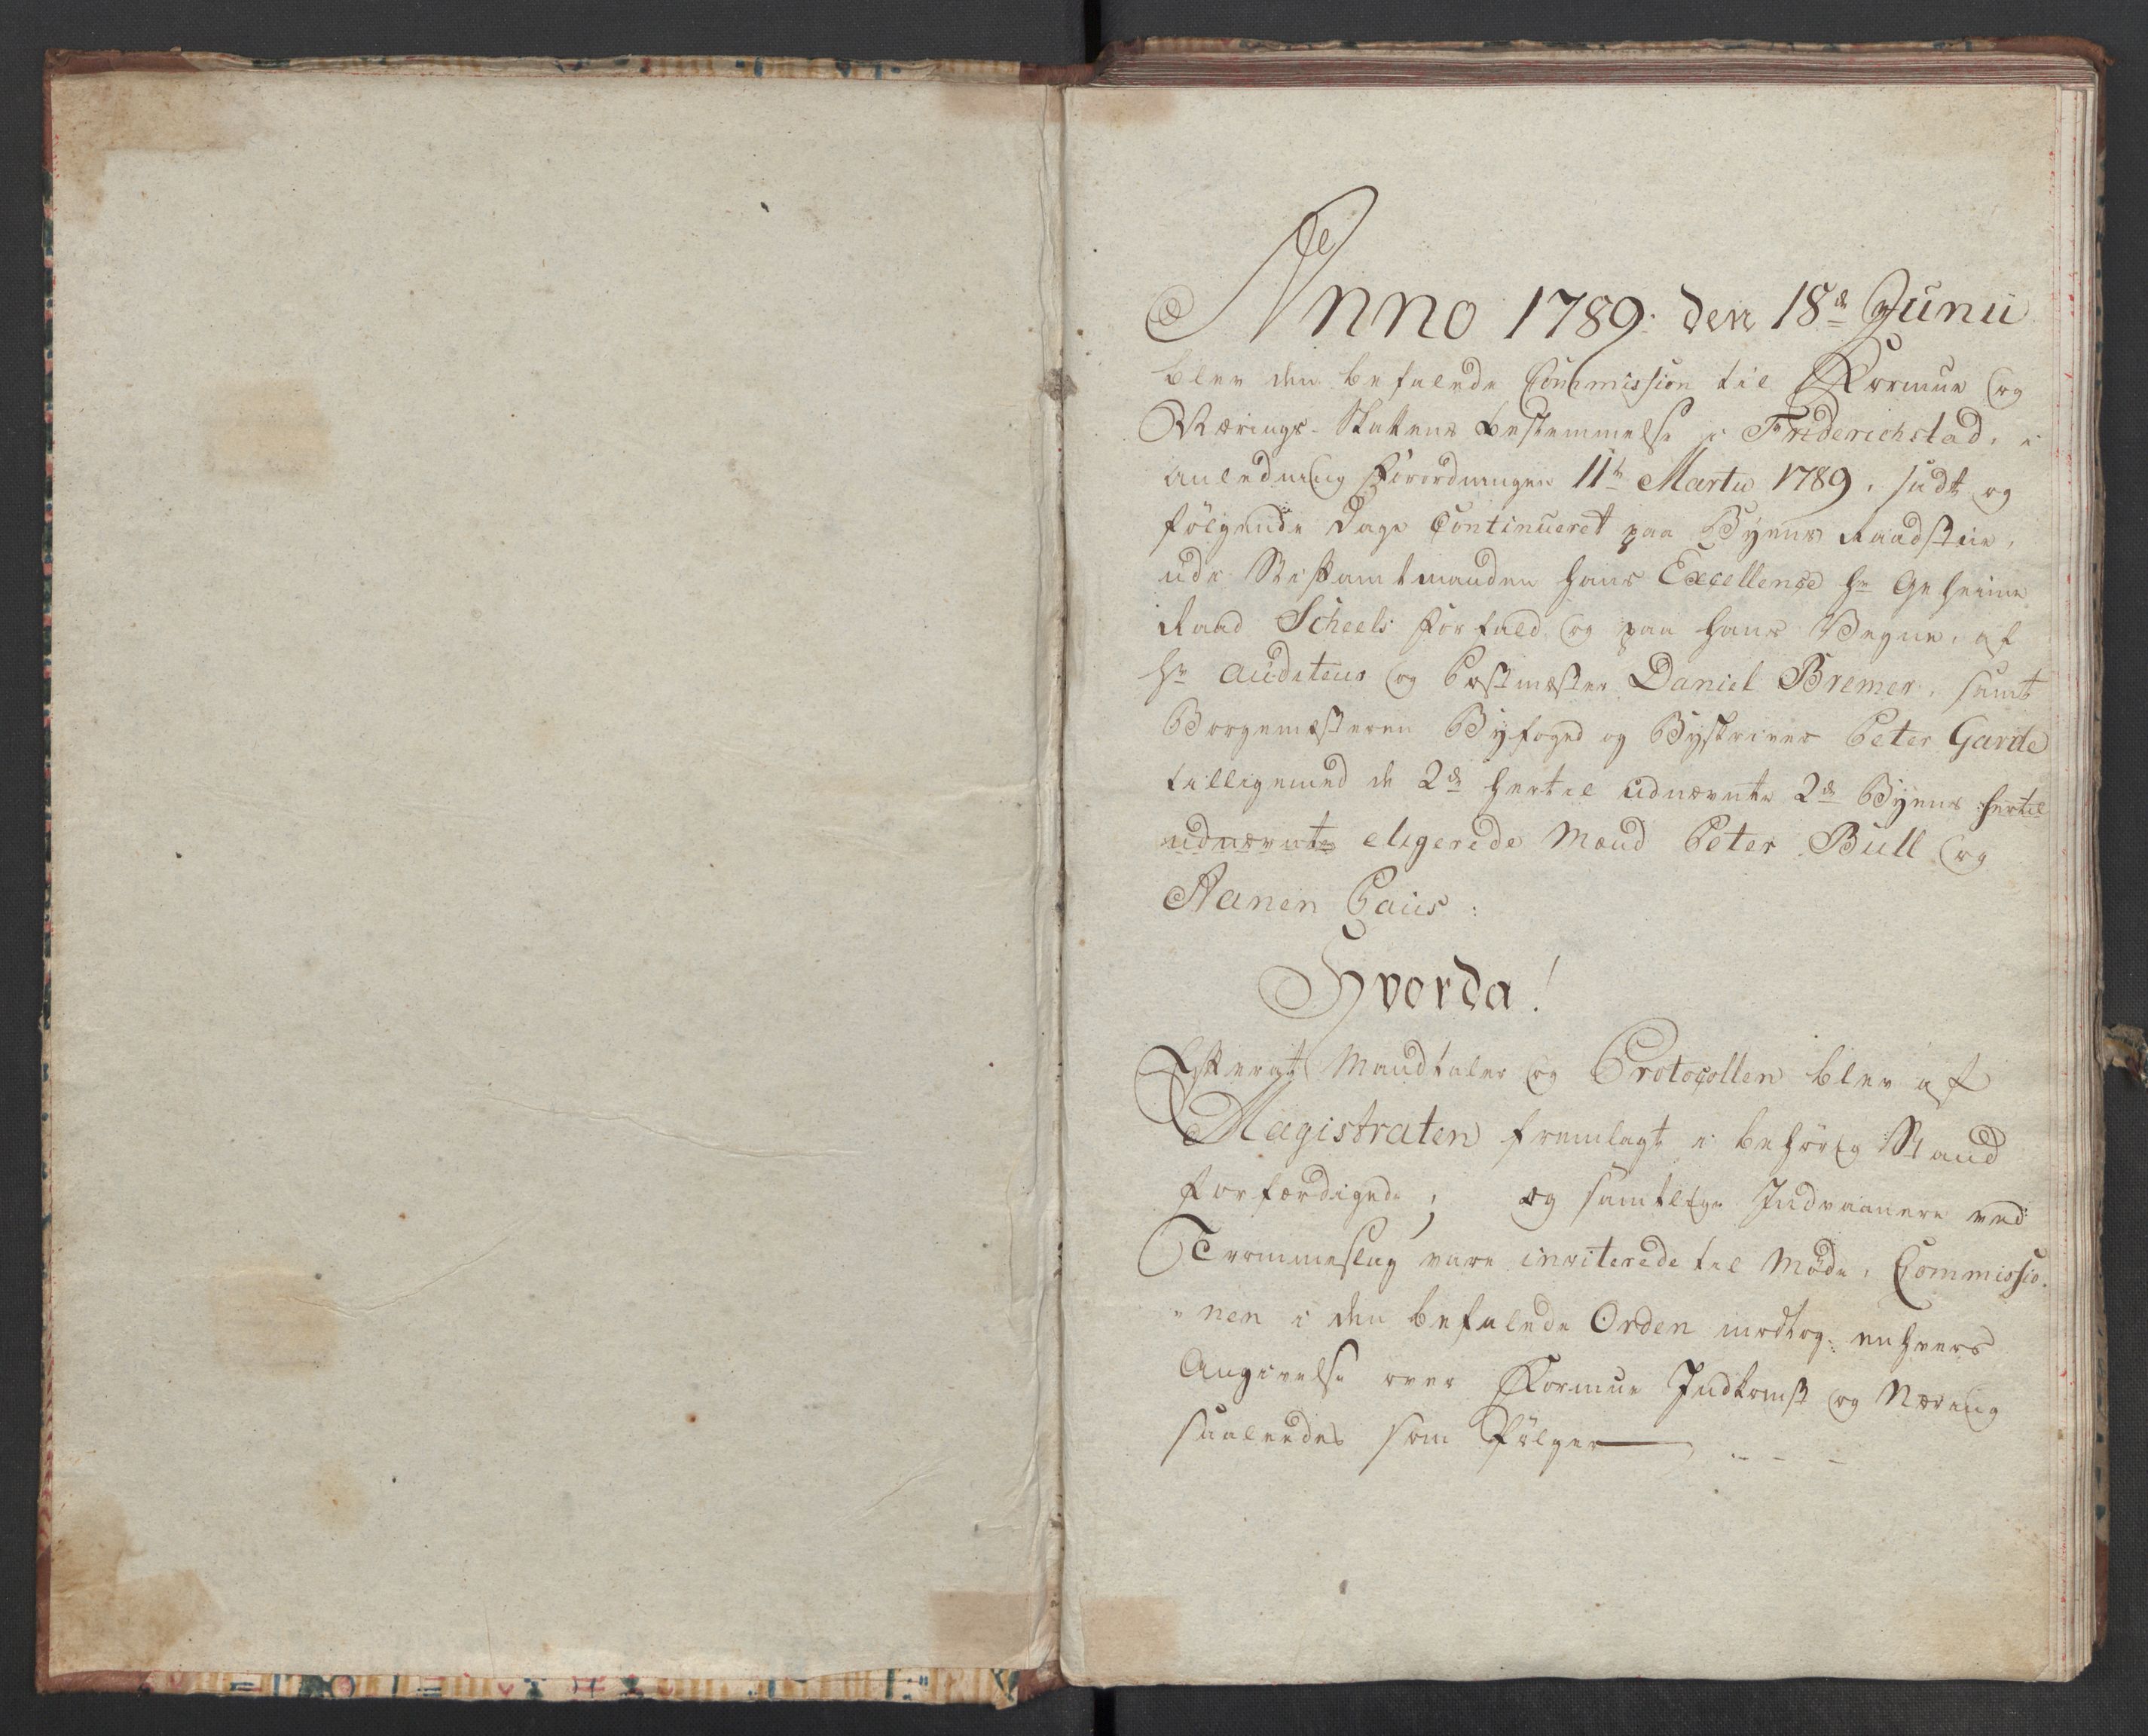 Anno 1789. den 18de Junii
blev den befalede Commission til Formue og
Nærings-Skattens bestemmelse i Friderichstad, i
anledning Forordningen 11te Martii 1789, sadt og
følgende Dage Continueret paa Byens Raadstue,
udi Stiftamtmanden hans Excellence Hr Geheime
Raad Scheels Forfald og paa hans Vegne, af
Hr Auditeur og Postmester Daniel Bremer, samt
Borgemesteren Byfoged og Byskriver Peter Garde
tilligemed de 2de hertil udnævnte 2de Byens hertil
udnævnte eligerede Mænd Peter Bull og
Aanen Paus:
Hvorda!
Efterat Mandtaler og Protocollen blev af
Magistraten fremlagt i behørig Stand
forfærdiget; og samtlige Indvaanere ved
Trommeslag vare inviterede til Møde, Commissio-
nen i den befalede Orden modtog enhvers
Angivelse over Formue Indkomst og Næring
saaledes som følger